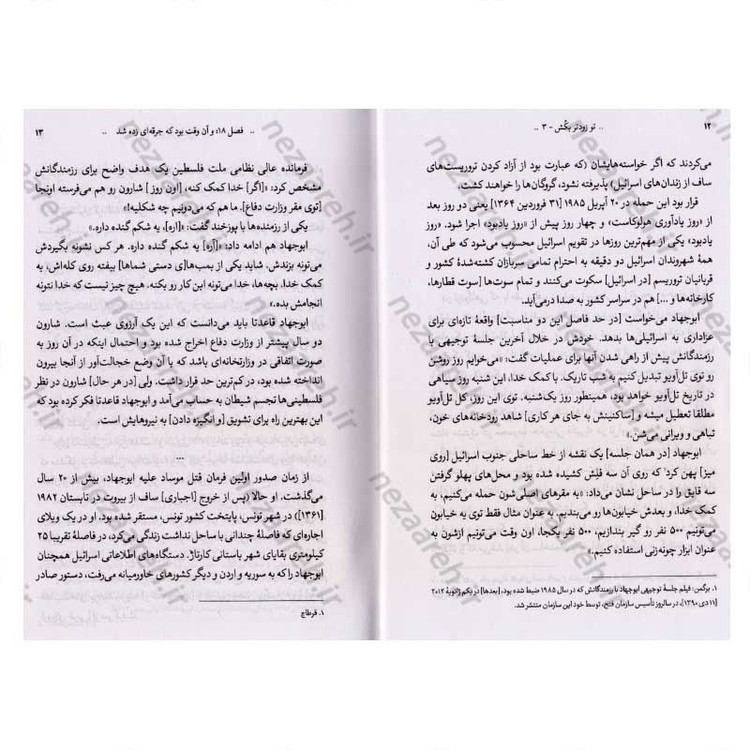 ۱۲
.. تو زودتر بکُش - ۳ ..
می‌کردند که اگر خواسته‌هایشان (که عبارت بود از آزاد کردن تروریست‌های
ساف از زندان‌های اسرائیل) پذیرفته نشود، گروگان‌ها را خواهند کشت.
قرار بود این حمله در ۲۰ آپریل ۱۹۸۵ [۳۱ فروردین ۱۳۶۴] یعنی دو روز بعد
از «روز یادآوری هولوکاست» و چهار روز پیش از «روز یادبود» اجرا شود. «روز
یادبود» یکی از مهم‌ترین روزها در تقویم اسرائیل محسوب می‌شود که طی آن،
همهٔ شهروندان اسرائیل دو دقیقه به احترام تمامی سربازان کشته‌شدهٔ کشور و
قربانیان تروریسم [در اسرائیل] سکوت می‌کنند و تمام سوت‌ها [سوت قطارها،
کارخانه‌ها و ...] هم در سراسر کشور به صدا درمی‌آید.
ابوجهاد می‌خواست [در حد فاصل این دو مناسبت] واقعهٔ تازه‌ای برای
عزاداری به اسرائیلی‌ها بدهد. خودش در خلال آخرین جلسهٔ توجیهی با
رزمندگانش پیش از راهی شدن آنها برای عملیات گفت: «می‌خوایم روز روشن
رو توی تل‌آویو تبدیل کنیم به شب تاریک. با کمک خدا، این شنبه روز سیاهی
در تاریخ تل‌آویو خواهد بود، همینطور روز یکشنبه. توی این روز، کل تل‌آویو
مطلقا تعطیل میشه و [ساکنینش به جای هر کاری] شاهد رودخانه‌های خون،
تباهی و ویرانی می‌شن.»
ابوجهاد [در همان جلسه] یک نقشه از خط ساحلی جنوب اسرائیل [روی
میز] پهن کرد¹ که روی آن سه فلش کشیده شده بود و محل‌های پهلو گرفتن
سه قایق را در ساحل نشان می‌داد: «به مقرهای اصلی‌شون حمله می‌کنیم، به
کمک خدا، و بعدش خیابون‌ها رو می‌بندیم. به عنوان مثال فقط توی یه خیابون
می‌تونیم ۵۰۰ نفر رو گیر بندازیم، ۵۰۰ نفر یکجا، اون وقت می‌تونیم ازشون به
عنوان ابزار چونه‌زنی استفاده کنیم.»
۱. برگمن: فیلم جلسهٔ توجیهی ابوجهاد با رزمندگانش که در سال ۱۹۸۵ ضبط شده بود، [بعدها] در یکم ژانویهٔ ۲۰۱۲
[۱۱ دی ۱۳۹۰]، در سالروز تأسیس سازمان فتح، توسط خود این سازمان منتشر شد.
.. فصل ۱۸: و آن وقت بود که جرقه‌ای زده شد ..
۱۳
فرمانده عالی نظامی ملت فلسطین یک هدف واضح برای رزمندگانش
مشخص کرد: «[اگر] خدا کمک کنه، [اون روز] شارون رو هم می‌فرسته اونجا
[توی مقر وزارت دفاع]. ما هم که می‌دونیم چه شکلیه!»
یکی از رزمنده‌ها با پوزخند گفت: «[اره]، یه شکم گنده داره.»
ابوجهاد هم ادامه داد: «[آره] یه شکم گنده داره. هر کس نشونه بگیردش
می‌تونه بزندش. شاید یکی از بمب‌ها[ی دستی شماها] بیفته روی کله‌اش، به
کمک خدا. بچه‌ها، خدا می‌تونه این کار رو بکنه. هیچ چیز نیست که خدا نتونه
انجامش بده.»
ابوجهاد قاعدتا باید می‌دانست که این یک آرزوی عبث است. شارون
دو سال پیشتر از وزارت دفاع اخراج شده بود و احتمال اینکه در آن روز به
صورت اتفاقی در وزارتخانه‌ای باشد که با آن وضع خجالت‌آور از آنجا بیرون
انداخته شده بود، در کم‌ترین حد قرار داشت. ولی [در هر حال] شارون در نظر
فلسطینی‌ها تجسم شیطان به حساب می‌آمد و ابوجهاد قاعدتا فکر کرده بود که
این بهترین راه برای تشویق [و انگیزه دادن] به نیروهایش است.
...
از زمان صدور اولین فرمان قتل موساد علیه ابوجهاد، بیش از ۲۰ سال
می‌گذشت. او حالا [پس از خروج [اجباری] ساف از بیروت در تابستان ۱۹۸۲
[۱۳۶۱]) در شهر تونس، پایتخت کشور تونس، مستقر شده بود. او در یک ویلای
اجاره‌ای که فاصلهٔ چندانی با ساحل نداشت زندگی می‌کرد، در فاصلهٔ تقریبا ۲۵
کیلومتری بقایای شهر باستانی کارتاژ¹. دستگاه‌های اطلاعاتی اسرائیل همچنان
ابوجهاد را که به سوریه و اردن و دیگر کشورهای خاورمیانه می‌رفت، دستور صادر
۱. قرطاج
nezaareh.ir
nezaareh.ir
nezaareh.ir
nezaareh.ir
nezaareh.ir
nezaareh.ir